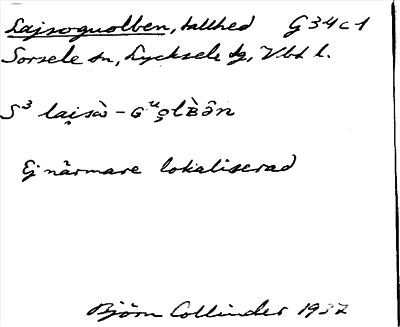 Lajsoguolben, tallhed G34c1
Sorsele sn, Lycksele tg, Vbt l.
S³ lai̯sὰ - Gᵘo̧lB̀ən
Ej närmare lokaliserad
Björn Collinder 1937